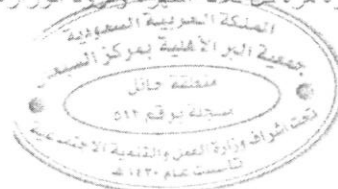 المملكة العربية السعودية
جمعية البر الأهلية بمركز السبعان
منطقة حائل
مسجلة برقم ٥١٢
تحت اشراف وزارة العمل والتنمية الاجتماعية
تأسست عام ١٤٣٠ هـ